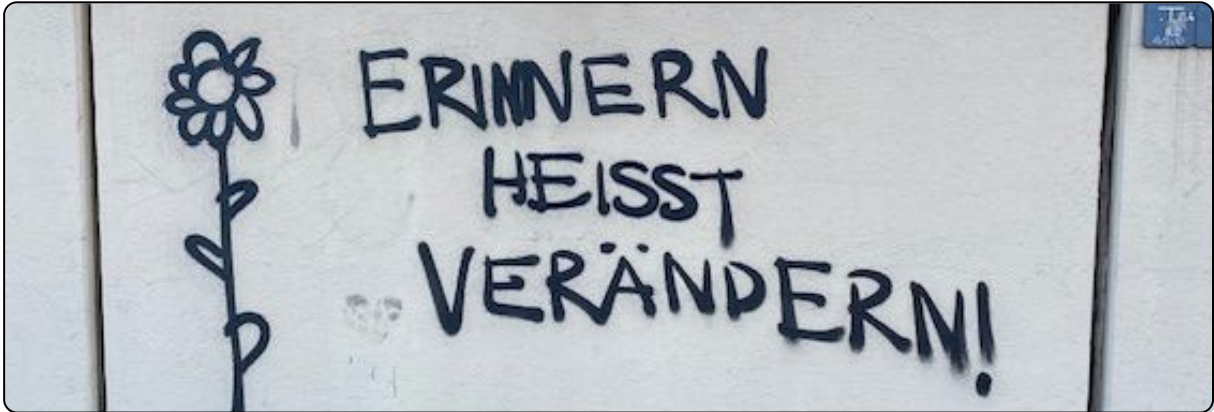 ERINNERN
HEISST
VERÄNDERN!